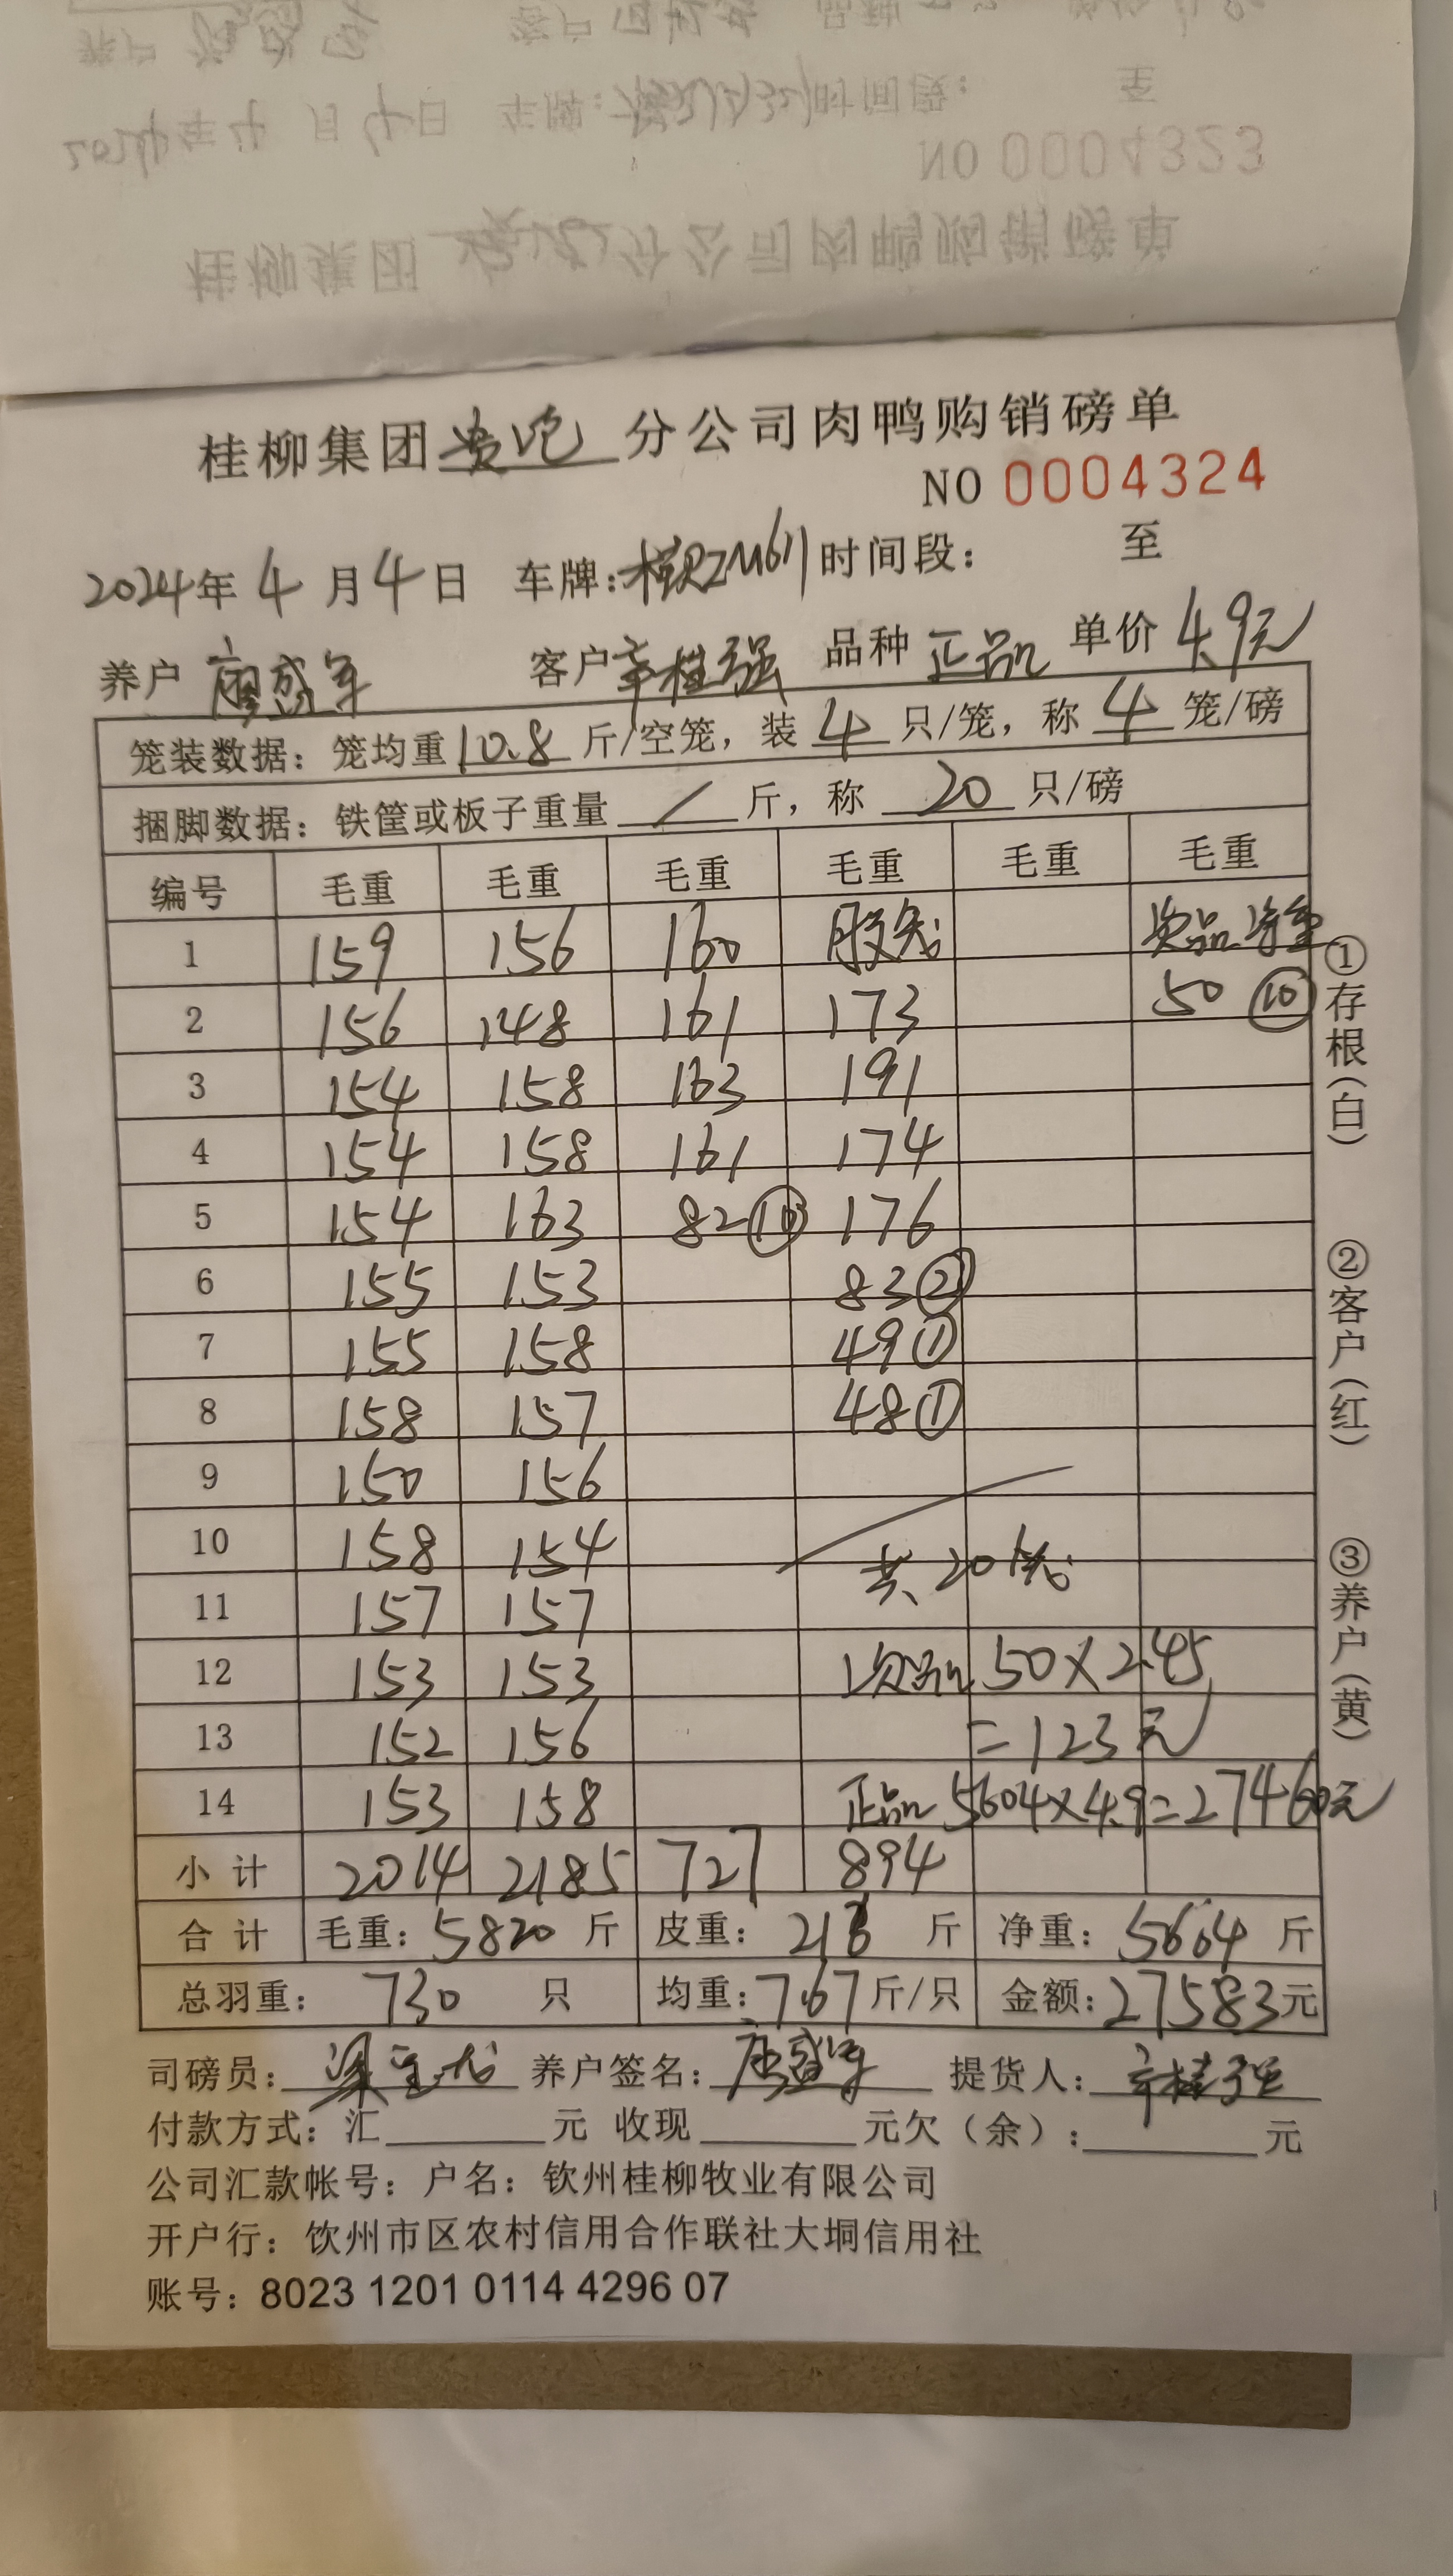 NO 0004323
桂柳集团 分公司肉鸭购销磅单
桂柳集团 分公司肉鸭购销磅单
NO 0004324
2024年 4 月 4 日 车牌: 时间段: 至
养户 廖盛年 客户 辛桂强 品种 正品 单价 4.9元
笼装数据: 笼均重 10.8 斤/空笼, 装 4 只/笼, 称 4 笼/磅
捆脚数据: 铁筐或板子重量 / 斤, 称 20 只/磅
编号 毛重 毛重 毛重 毛重 毛重 毛重
1 159 156 160 次品净重
2 156 148 161 173 50 ⑩
3 154 158 163 191
4 154 158 161 174
5 154 163 82 ⑩ 176
6 155 153 83 ②
7 155 158 49 ①
8 158 157 48 ①
9 150 156
10 158 154 共20个笼
11 157 157
12 153 153 次品 50×2.45
13 152 156 =123元
14 153 158 正品 5604×4.9=27460元
小计 2014 2185 727 894
合计 毛重: 5820 斤 皮重: 216 斤 净重: 5604 斤
总羽重: 730 只 均重: 7.67 斤/只 金额: 27583 元
司磅员: 养户签名: 廖盛年 提货人: 辛桂强
付款方式: 汇 元 收现 元欠(余): 元
公司汇款帐号: 户名: 钦州桂柳牧业有限公司
开户行: 钦州市区农村信用合作联社大垌信用社
账号: 8023 1201 0114 4296 07
①存根(白)
②客户(红)
③养户(黄)